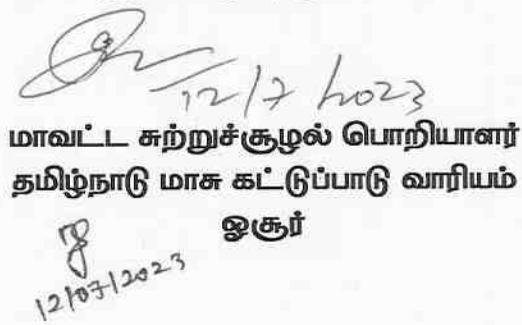 12/7/2023
மாவட்ட சுற்றுச்சூழல் பொறியாளர்
தமிழ்நாடு மாசு கட்டுப்பாடு வாரியம்
ஓசூர்
12/07/2023